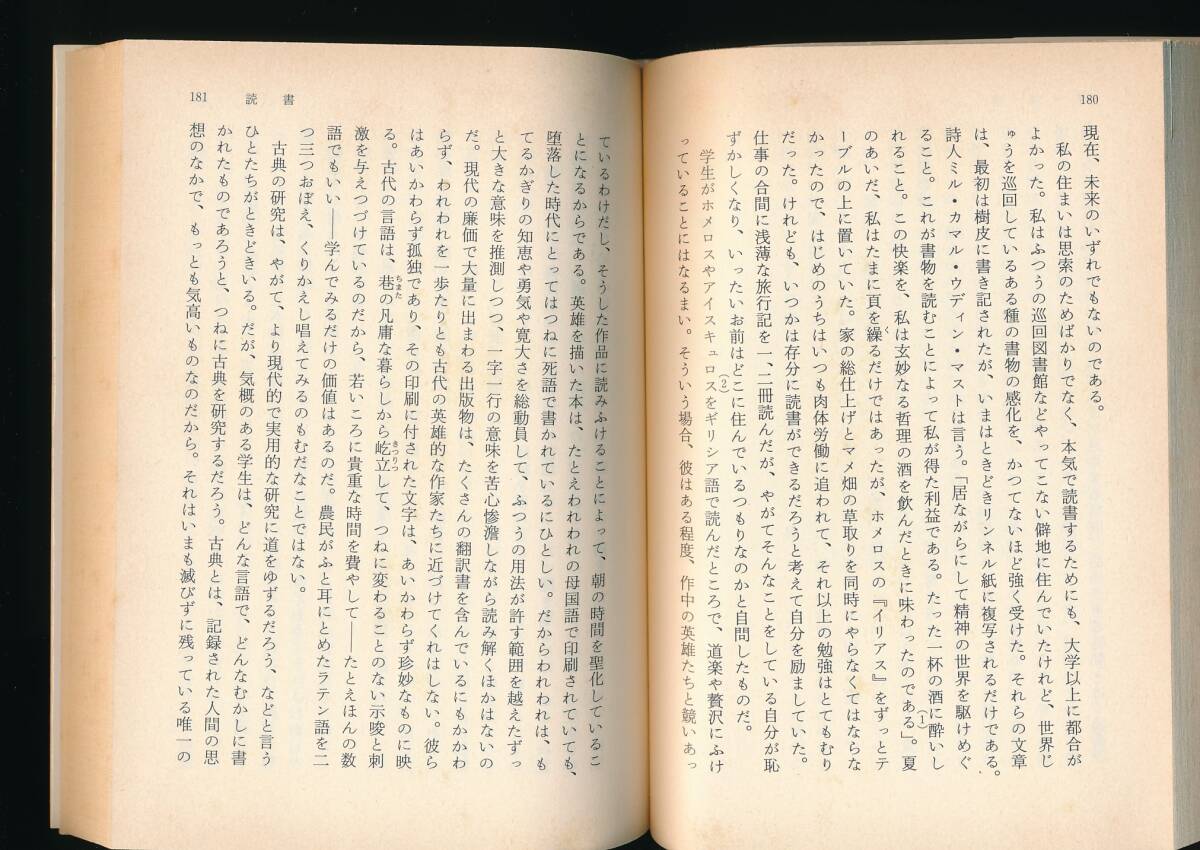 180
現在、未来のいずれでもないのである。
私の住まいは思索のためばかりでなく、本気で読書するためにも、大学以上に都合が
よかった。私はふつうの巡回図書館などやってこない僻地に住んでいたけれど、世界じ
ゅうを巡回しているある種の書物の感化を、かつてないほど強く受けた。それらの文章
は、最初は樹皮に書き記されたが、いまはときどきリンネル紙に複写されるだけである。
詩人ミル・カマル・ウディン・マストは言う。「居ながらにして精神の世界を駆けめぐ
ること。これが書物を読むことによって私が得た利益である。たった一杯の酒に酔いし
れること。この快楽を、私は玄妙なる哲理の酒を飲んだときに味わったのである」(1)。夏
のあいだ、私はたまに頁を繰くるだけではあったが、ホメロスの『イリアス』をずっとテ
ーブルの上に置いていた。家の総仕上げとマメ畑の草取りを同時にやらなくてはならな
かったので、はじめのうちはいつも肉体労働に追われて、それ以上の勉強はとてもむり
だった。けれども、いつかは存分に読書ができるだろうと考えて自分を励ましていた。
仕事の合間に浅薄な旅行記を一、二冊読んだが、やがてそんなことをしている自分が恥
ずかしくなり、いったいお前はどこに住んでいるつもりなのかと自問したものだ。
学生がホメロスやアイスキュロス(2)をギリシア語で読んだところで、道楽や贅沢にふけ
っていることにはなるまい。そういう場合、彼はある程度、作中の英雄たちと競いあっ
181 読書
ているわけだし、そうした作品に読みふけることによって、朝の時間を聖化しているこ
とになるからである。英雄を描いた本は、たとえわれわれの母国語で印刷されていても、
堕落した時代にとってはつねに死語で書かれているにひとしい。だからわれわれは、も
てるかぎりの知恵や勇気や寛大さを総動員して、ふつうの用法が許す範囲を越えたずっ
と大きな意味を推測しつつ、一字一行の意味を苦心惨澹しながら読み解くほかはないの
だ。現代の廉価で大量に出まわる出版物は、たくさんの翻訳書を含んでいるにもかかわ
らず、われわれを一歩たりとも古代の英雄的な作家たちに近づけてくれはしない。彼ら
はあいかわらず孤独であり、その印刷に付された文字は、あいかわらず珍妙なものに映
る。古代の言語は、巷ちまたの凡庸な暮らしから屹立きつりつして、つねに変わることのない示唆と刺
激を与えつづけているのだから、若いころに貴重な時間を費やして——たとえほんの数
語でもいい——学んでみるだけの価値はあるのだ。農民がふと耳にとめたラテン語を二
つ三つおぼえ、くりかえし唱えてみるのもむだなことではない。
古典の研究は、やがて、より現代的で実用的な研究に道をゆずるだろう、などと言う
ひとたちがときどきいる。だが、気概のある学生は、どんな言語で、どんなむかしに書
かれたものであろうと、つねに古典を研究するだろう。古典とは、記録された人間の思
想のなかで、もっとも気高いものなのだから。それはいまも滅びずに残っている唯一の